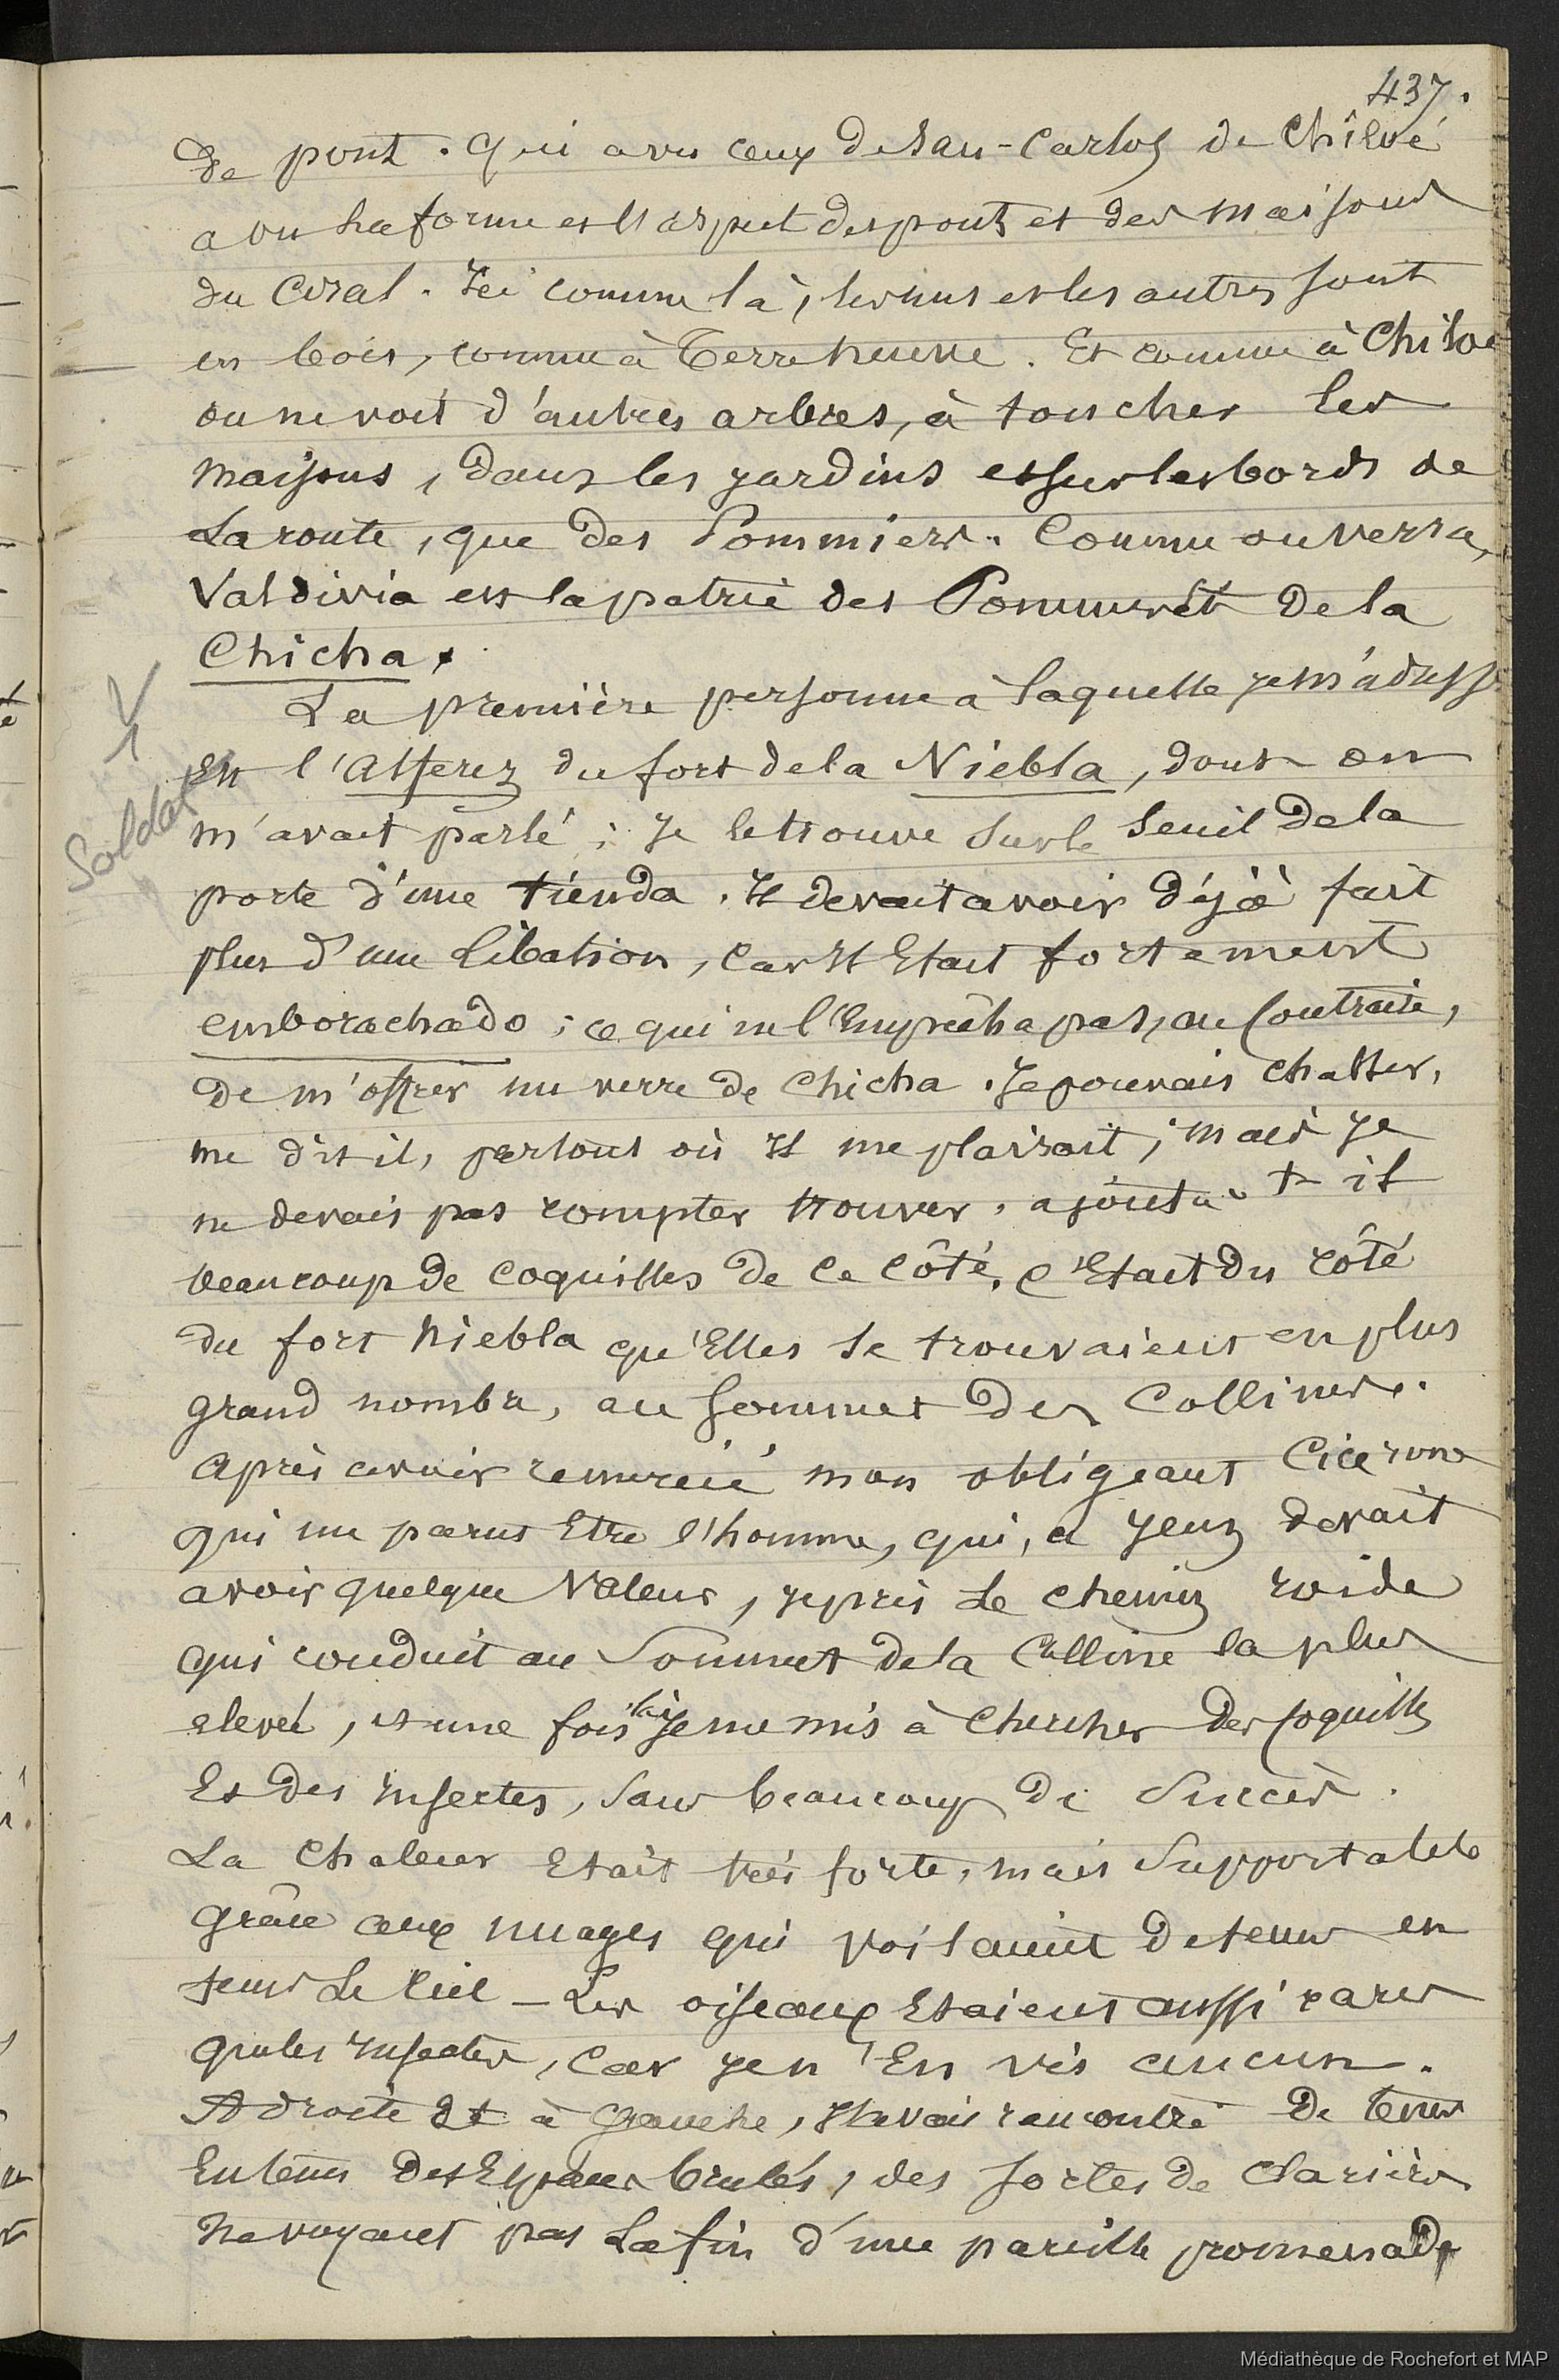 437.
de pont. qui a vu ceux de san-Carlos de Chiloé
a vu la forme et l'aspect des ponts et des maisons
du Coral. Ici comme là, les uns et les autres sont
en bois, comme à Terre neuve. Et comme à Chiloe
on ne voit d'autres arbres, à toucher les
maisons, dans les jardins et sur les bords de
La route, que des Pommiers. Comme on verra,
Valdivia est la patrie des Pommes et de la
Chicha.
La première personne à laquelle je m'adresse
Est l'Alferez du fort de la Niebla, dont on
m'avait parlé ; Je le trouve sur le seuil de la
Soldat
porte d'une tienda. Il devait avoir déjà fait
plus d'une libation, car Il Etait fortement
emborachado ; ce qui ne l'Empêcha pas, au Contraire,
de m'offrer un verre de Chicha. Je pouvais chasser,
me dit il, partout où Il me plairait ; mais je
ne devais pas compter trouver, ajouta-t-il
beaucoup de coquilles de ce côté. C'Etait du côté
du fort Niebla qu'Elles se trouvaient en plus
grand nombre, au sommet des Collines.
Après avoir remercié mon obligeant Cicerone
qui me parut Etre l'homme, qui, a jeun devait
avoir quelque Valeur, je pris Le chemin roide
qui conduit au Sommet de la Colline la plus
elevée, et une fois là, je me mis à chercher des coquilles
Et des Insectes, sans beaucoup de Succès.
La Chaleur Etait très forte, mais Supportable
grâce aux nuages qui voilaient de temps en
temps Le Ciel – Les oiseaux Etaient aussi rares
que les Insectes, car je n'En vis aucun.
A droite Et à Gauche, J'avais rencontré De temps
En temps des Espaces brulés, des sortes de Clarières
Ne voyant pas La fin d'une pareille promenade
Médiathèque de Rochefort et MAP